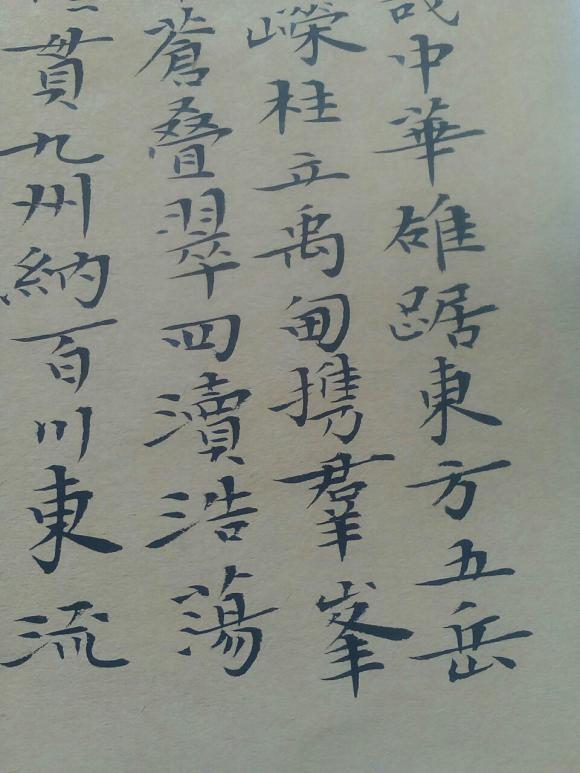 哉中華雄踞東方五岳
嶸柱立禹甸携羣峯
蒼叠翠四瀆浩蕩
貫九州納百川東流